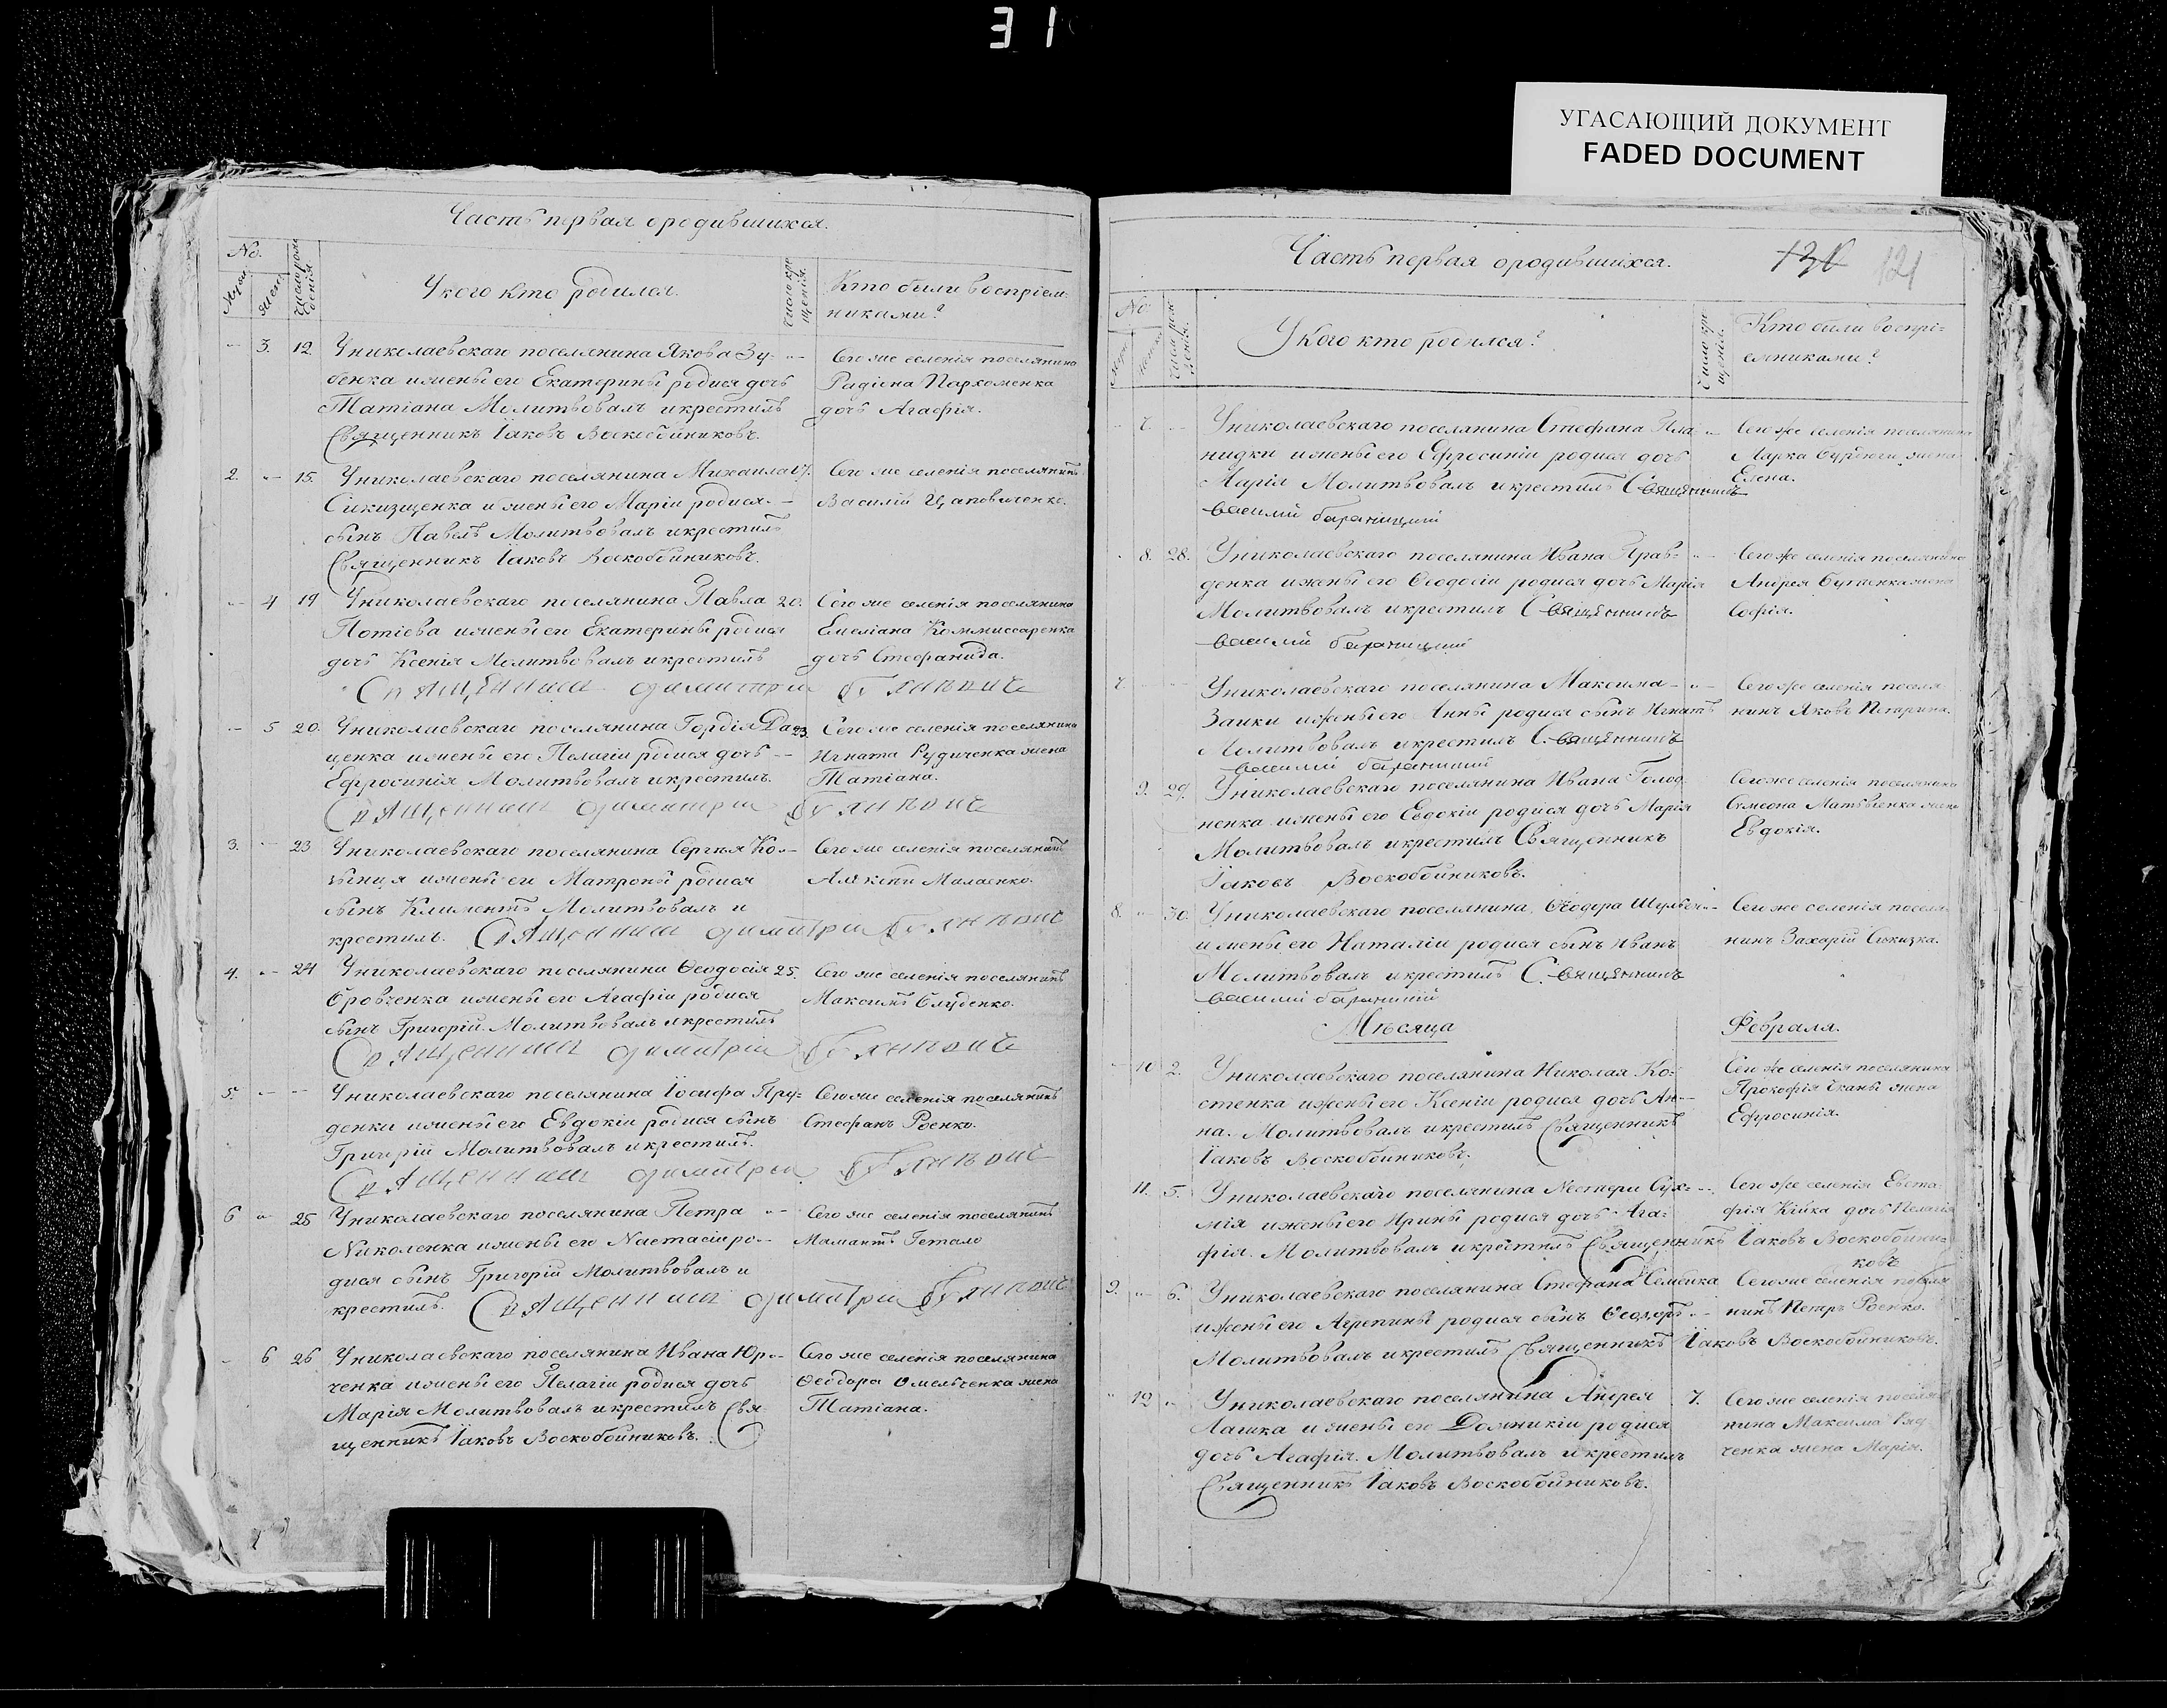 31
УГАСАЮЩИЙ ДОКУМЕНТ
FADED DOCUMENT
Часть первая ородившихся.
No.
Число рож
денія
У кого кто родился.
Число кре
щенія.
Кто были воспріем:
никами?
— 3. 12. Униколаевскаго поселянина Якова Зу- „—
бенка ижены его Екатерины родися дочь
Татіана Молитвовалъ икрестилъ
Священникъ Іаковъ Воскобойниковъ.
Сего же селенія поселянина
Радіона Пархоменка
дочь Агафія.
2. „— 15. Униколаевскаго поселянина Михаила
ижены его Маріи родися —
сынъ Павелъ Молитвовалъ икрестилъ
Священникъ Іаковъ Воскобойниковъ.
Сего же селенія поселянинъ
Василій
„— 4 19 Униколаевскаго поселянина Павла 20.
Потіева ижены его Екатерины родися
дочь Ксенія Молитвовалъ икрестилъ
Священникъ Димитрій
Сего же селенія поселянина
Емеліана Коммиссаренка
дочь Стефанида.
— 5 20. Уникoлаевскаго поселянина Гордія Да- 23.
ценка ижены его Пелагіи родися дочь —
Ефросинія Молитвовалъ икрестилъ.
Священникъ Димитрій
Сего же селенія поселянина
Игната Рудиченка жена
Татіана.
3. — 23 Уникoлаевскаго поселянина Сергѣя Ко-—
ижены его Матроны родися
сынъ Климентъ Молитвовалъ и
крестилъ. Священникъ Димитрій
Сего же селенія поселянинъ
Малаенко.
4. „— 24 Уникoлаевскаго поселянина Ѳеодосія 25.
Бровченка ижены его Агафіи родися
сынъ Григорій. Молитвовалъ икрестилъ
Священникъ Димитрій
Сего же селенія поселянинъ
Максимъ Слуденко.
5. — — Уникoлаевскаго поселянина Іосифа При-
денки ижены его Евдокіи родися сынъ
Григорій Молитвовалъ икрестилъ.
Священникъ Димитрій
Сего же селенія поселянинъ
Стефанъ Роенко.
6 „ 25 Уникoлаевскаго поселянина Петра „—
Николенка ижены его Настасіи ро-—
дися сынъ Григорій Молитвовалъ и
крестилъ. Священникъ Димитрій
Сего же селенія поселянинъ
Мамантъ Гетало
— 6 26 Уникoлаевскаго поселянина Ивана Юр-—
ченка ижены его Пелагіи родися дочь
Марія Молитвовалъ икрестилъ Свя-
щенникъ Іаковъ Воскобойниковъ.
Сего же селенія поселянина
Ѳеодора Омельченка жена
Татіана.
Часть первая ородившихся. 121
No.
У кого кто родился?
Число кре
щенія.
Кто были воспрі=
емниками?
— 7. — Уникoлаевскаго поселянина Стефана Пла- „—
нидки ижены его Ефросиніи родися дочь
Марія Молитвовалъ икрестилъ Священникъ
василій бараницкій
Сего же селенія поселянина
Марка жена
Елена.
8. 28. Уникoлаевскаго поселянина Ивана Прав- „—
денка ижены его Ѳеодосіи родися дочь Марія
Молитвовалъ икрестилъ Священникъ
василій бараницкій
Сего же селенія поселянина
Андрея Бутенка жена
Софія.
7. — Уникoлаевскаго поселянина Максима — „—
Заики ижены его Анны родися сынъ Игнатъ
Молитвовалъ икрестилъ Священникъ
василій бараницкій
Сего же селенія поселя
нинъ Яковъ
9. 29. Уникoлаевскаго поселянина Ивана Голод-
ненка ижены его Евдокіи родися дочь Марія
Молитвовалъ икрестилъ Священникъ
Іаковъ Воскобойниковъ.
Сего же селенія поселянина
Симеона Матвіенка жена
Евдокія.
8. „ 30. Уникoлаевскаго поселянина Ѳеодора
ижены его Наталіи родися сынъ Иванъ
Молитвовалъ икрестилъ Священникъ
василій бараницкій
Сего же селенія поселя
нинъ Захарій
Мѣсяца Февраля.
— 10 2. Уникoлаевскаго поселянина Николая Ко-
стенка ижены его Ксеніи родися дочь Ан-—
на. Молитвовалъ икрестилъ Священникъ
Іаковъ Воскобойниковъ.
Сего же селенія поселянина
Прокофія жена
Ефросинія.
11. 5. Уникoлаевскаго поселянина Нестера Сух- —
мія ижены его Ирины родися дочь Ага-
фія. Молитвовалъ икрестилъ Священникъ Іаковъ Воскобойни=
ковъ
Сего же селенія Евста-
фія Кійка дочь Пелагія
9. „ 6. Уникoлаевскаго поселянина Стефана Семенка
ижены его Агрепины родися сынъ Ѳеодоръ „—
Молитвовалъ икрестилъ Священникъ Іаковъ Воскобойниковъ.
Сего же селенія поселя
нинъ Петръ Роенко.
„ 12 „ Уникoлаевскаго поселянина Андрея 7.
Лашка ижены его Домникіи родися
дочь Агафія. Молитвовалъ икрестилъ
Священникъ Іаковъ Воскобойниковъ.
Сего же селенія поселя
нина Максима
ченка жена Марія.